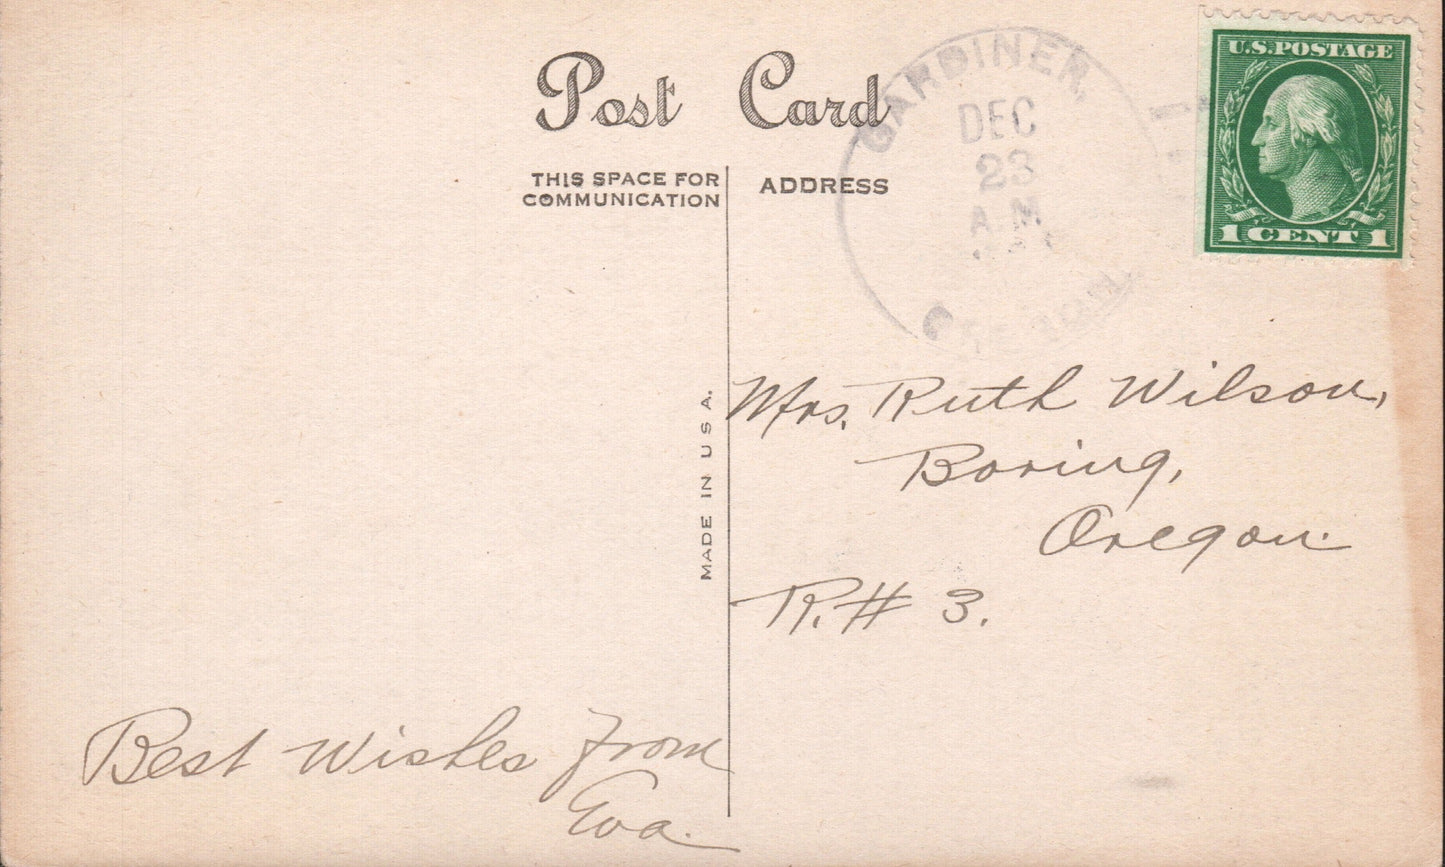 Post Card
THIS SPACE FOR
COMMUNICATION
ADDRESS
GARDINER,
DEC
23
A.M.
OREGON
U.S. POSTAGE
1 CENT 1
MADE IN U S A.
Mrs. Ruth Wilson,
Boring,
Oregon.
R. # 3.
Best Wishes from
Eva.